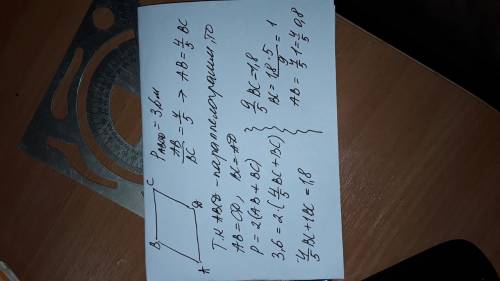 B C
A D
P ABCD = 3,6 м
AB/BC = 4/5 → AB = 4/5 BC
Т.к ABCD - параллелограмм, то
AB = CD, BC = AD
P = 2(AB + BC)
3,6 = 2 · (4/5 BC + BC)
4/5 BC + 1BC = 1,8
9/5 BC = 1,8
BC = 1,8 · 5/9 = 1
AB = 4/5 · 1 = 4/5 0,8